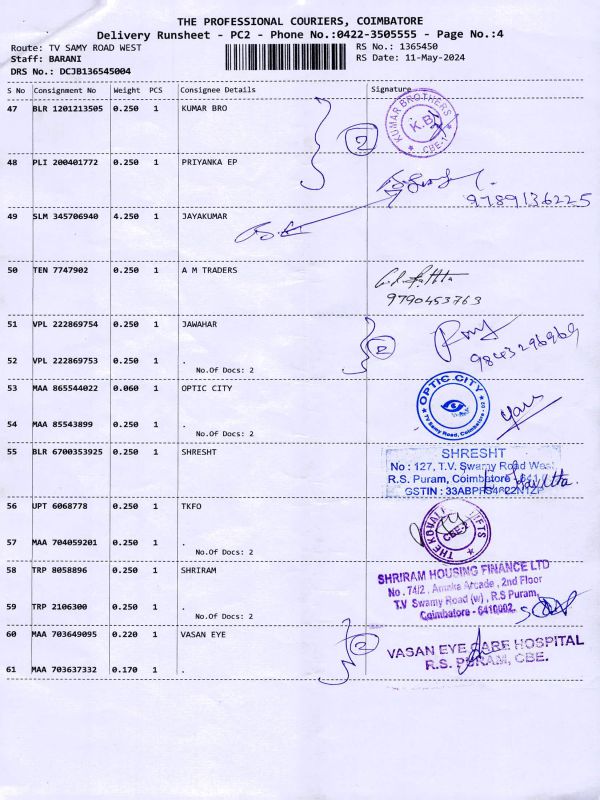 THE PROFESSIONAL COURIERS, COIMBATORE
Delivery Runsheet - PC2 - Phone No.:0422-3505555 - Page No.:4
Route: TV SAMY ROAD WEST
Staff: BARANI
DRS No.: DCJB136545004
RS No.: 1365450
RS Date: 11-May-2024
S No Consignment No Weight PCS Consignee Details Signature
47 BLR 1201213505 0.250 1 KUMAR BRO
KUMAR BROTHERS
K.B
CBE-1
2
48 PLI 200401772 0.250 1 PRIYANKA EP
9789136225
49 SLM 345706940 4.250 1 JAYAKUMAR
50 TEN 7747902 0.250 1 A M TRADERS
9790453763
51 VPL 222869754 0.250 1 JAWAHAR
9843296969
2
52 VPL 222869753 0.250 1 .
No.Of Docs: 2
53 MAA 865544022 0.060 1 OPTIC CITY
OPTIC CITY
TV Samy Road, Coimbatore - 02
54 MAA 85543899 0.250 1 .
No.Of Docs: 2
55 BLR 6700353925 0.250 1 SHRESHT
SHRESHT
No : 127, T.V. Swamy Road West,
R.S. Puram, Coimbatore
GSTIN :
56 UPT 6068778 0.250 1 TKFO
THE
CBE-2
57 MAA 704059201 0.250 1 .
No.Of Docs: 2
58 TRP 8058896 0.250 1 SHRIRAM
SHRIRAM HOUSING FINANCE LTD
No. 74/2, Arcade, 2nd Floor
T.V Swamy Road (w), R.S Puram,
Coimbatore - 6410002.
59 TRP 2106300 0.250 1 .
No.Of Docs: 2
60 MAA 703649095 0.220 1 VASAN EYE
2
VASAN EYE CARE HOSPITAL
R.S. PURAM, CBE.
61 MAA 703637332 0.170 1 .